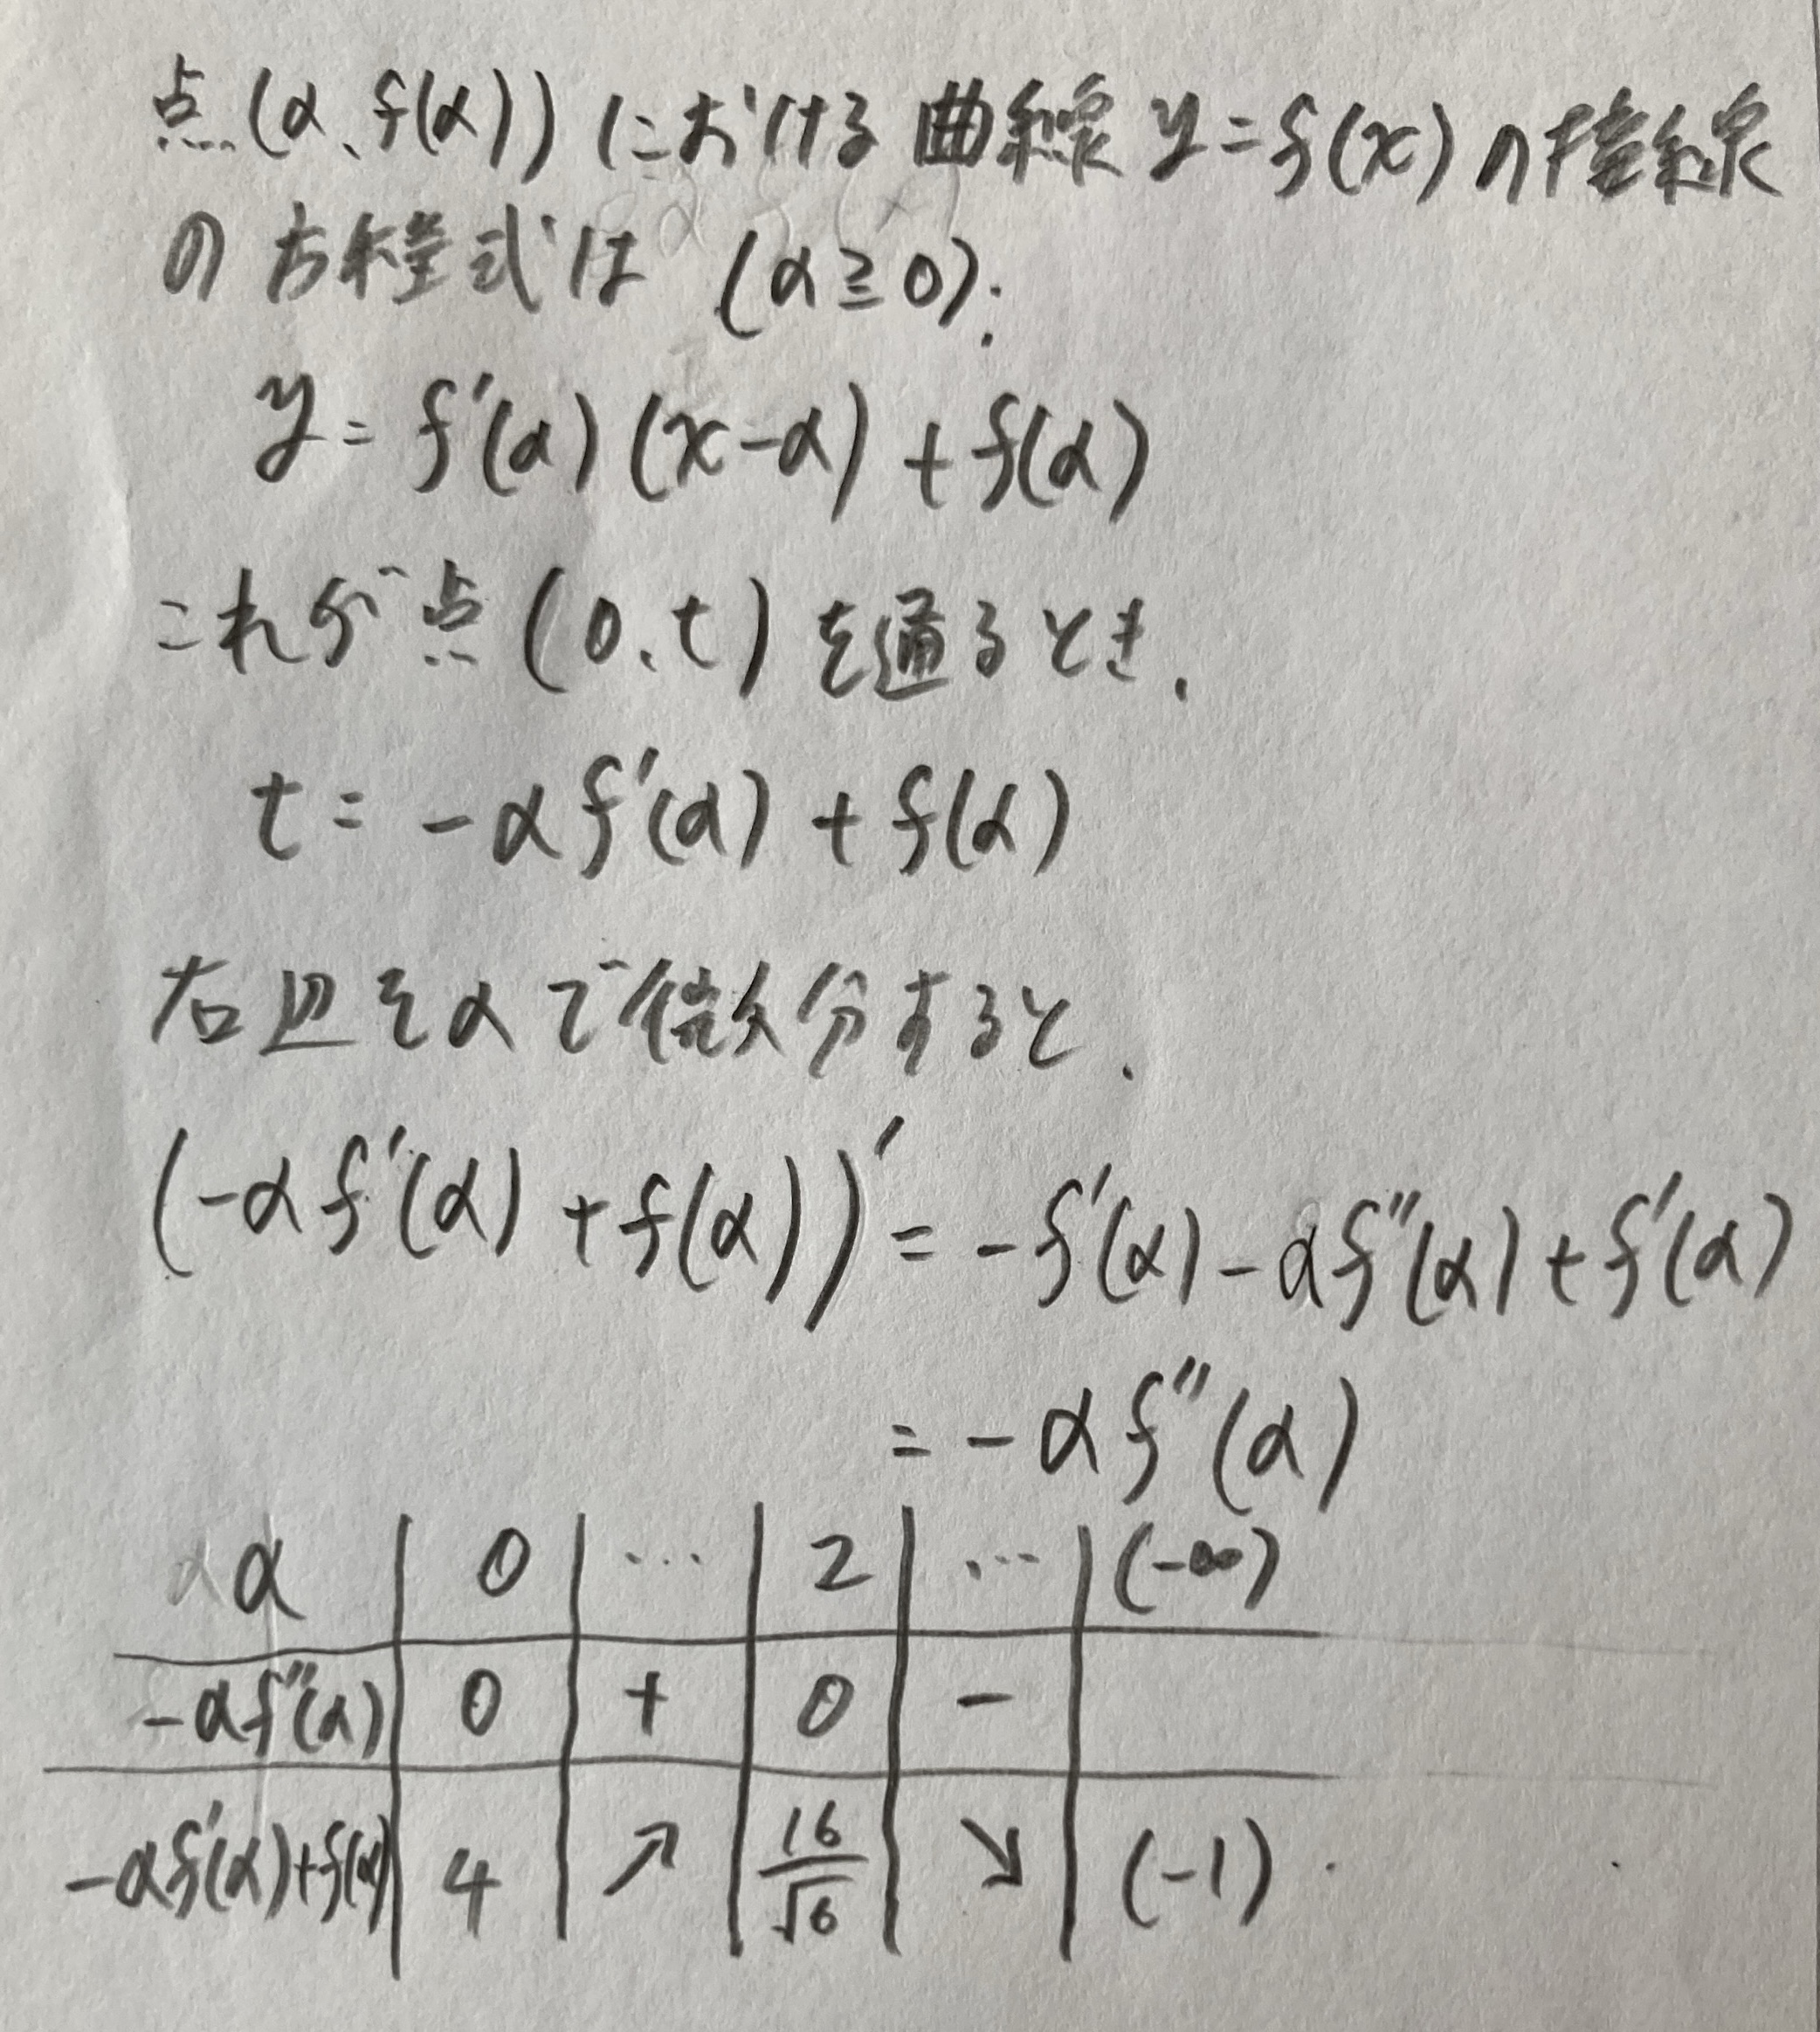 点(α、f(α)) における 曲線 y=f(x) の接線
の 方程式は (α≧0):
y = f'(α)(x-α) + f(α)
これが 点 (0、t) を通るとき、
t = -αf'(α) + f(α)
右辺をαで微分すると、
(-αf'(α) + f(α))' = -f'(α) - αf''(α) + f'(α)
= -αf''(α)
α | 0 | … | 2 | … | (-∞)
-αf''(α) | 0 | + | 0 | - |
-αf'(α)+f(α) | 4 | ↗ | 16/√6 | ↘ | (-1)